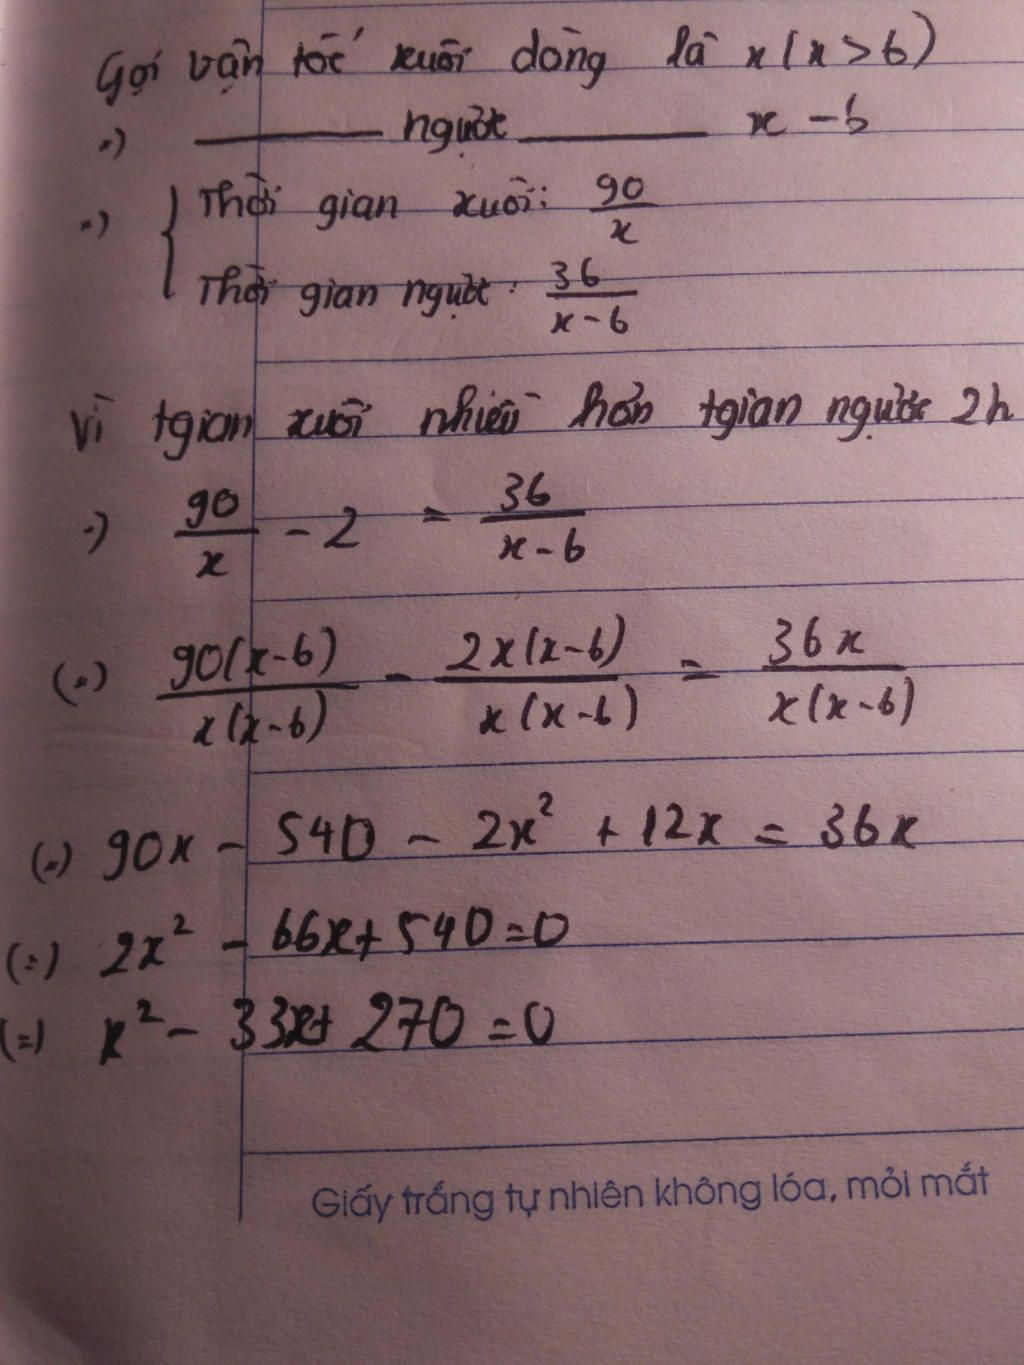 Gọi vận tốc xuôi dòng là x(x>6)
=) ——— ngược ——— x - 6
=) { Thời gian xuôi: 90/x
Thời gian ngược: 36/(x-6)
Vì tgian xuôi nhiều hơn tgian ngược 2h
=) 90/x - 2 = 36/(x-6)
(=) 90(x-6)/x(x-6) - 2x(x-6)/x(x-6) = 36x/x(x-6)
(=) 90x - 540 - 2x² + 12x = 36x
(=) 2x² - 66x + 540 = 0
(=) x² - 33x + 270 = 0
Giấy trắng tự nhiên không lóa, mỏi mắt